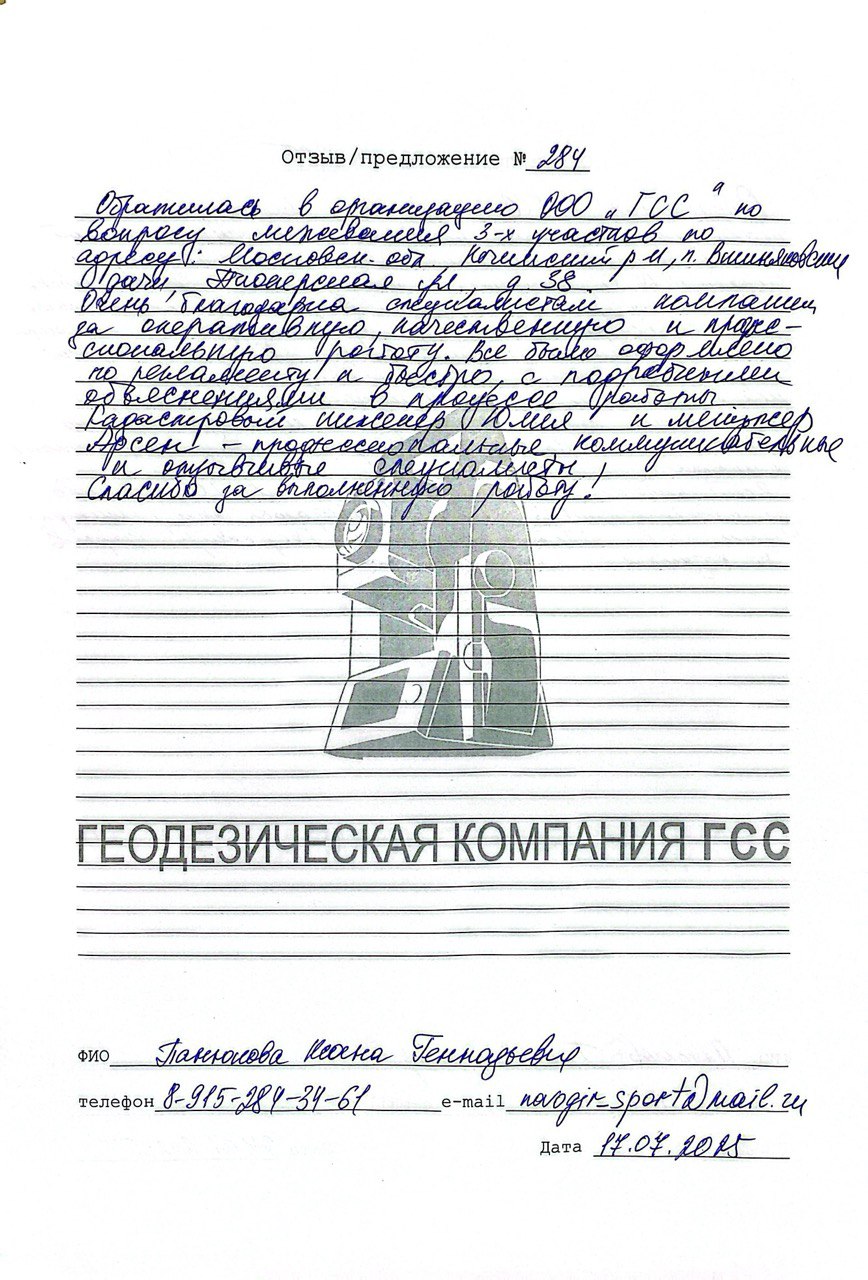 Отзыв/предложение № 284
Обратилась в организацию ООО „ГСС" по
вопросу межевания 3-х участков по
адресу: Московск. обл. р-н, п. Вишняковские
дачи Пионерская ул, д 38
Очень благодарна специалистам компании
за оперативную, качественную и профес-
сиональную работу. Все было оформлено
по регламенту и быстро, с подробными
объяснениями в процессе работы
Кадастровый инженер Юлия и менеджер
Арсен – профессиональные коммуникательные
и отзывчивые специалисты!
Спасибо за выполненную работу!
ГЕОДЕЗИЧЕСКАЯ КОМПАНИЯ ГСС
ФИО Панюкова Геннадьевна
телефон 8-915-284-34-61 e-mail novogir-sport@mail.ru
Дата 17.07.2025